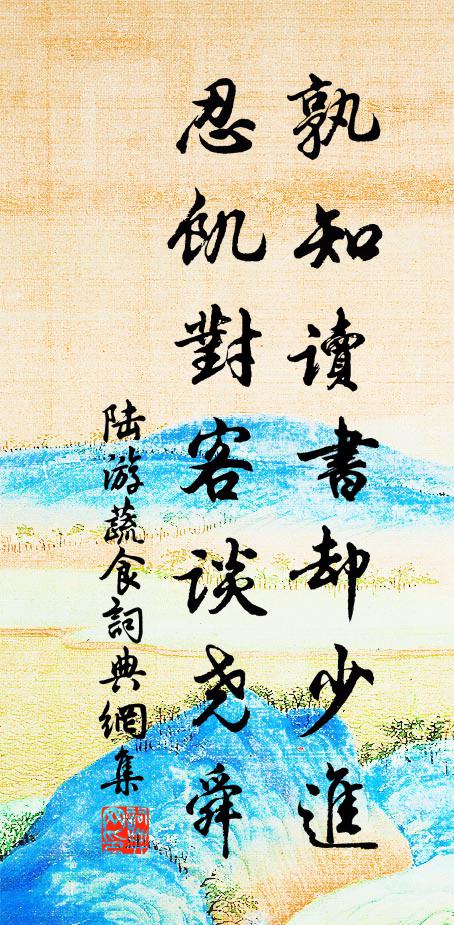 孰知讀書却少進
忍飢對客談尧舜
陆游蔬食詞典網集